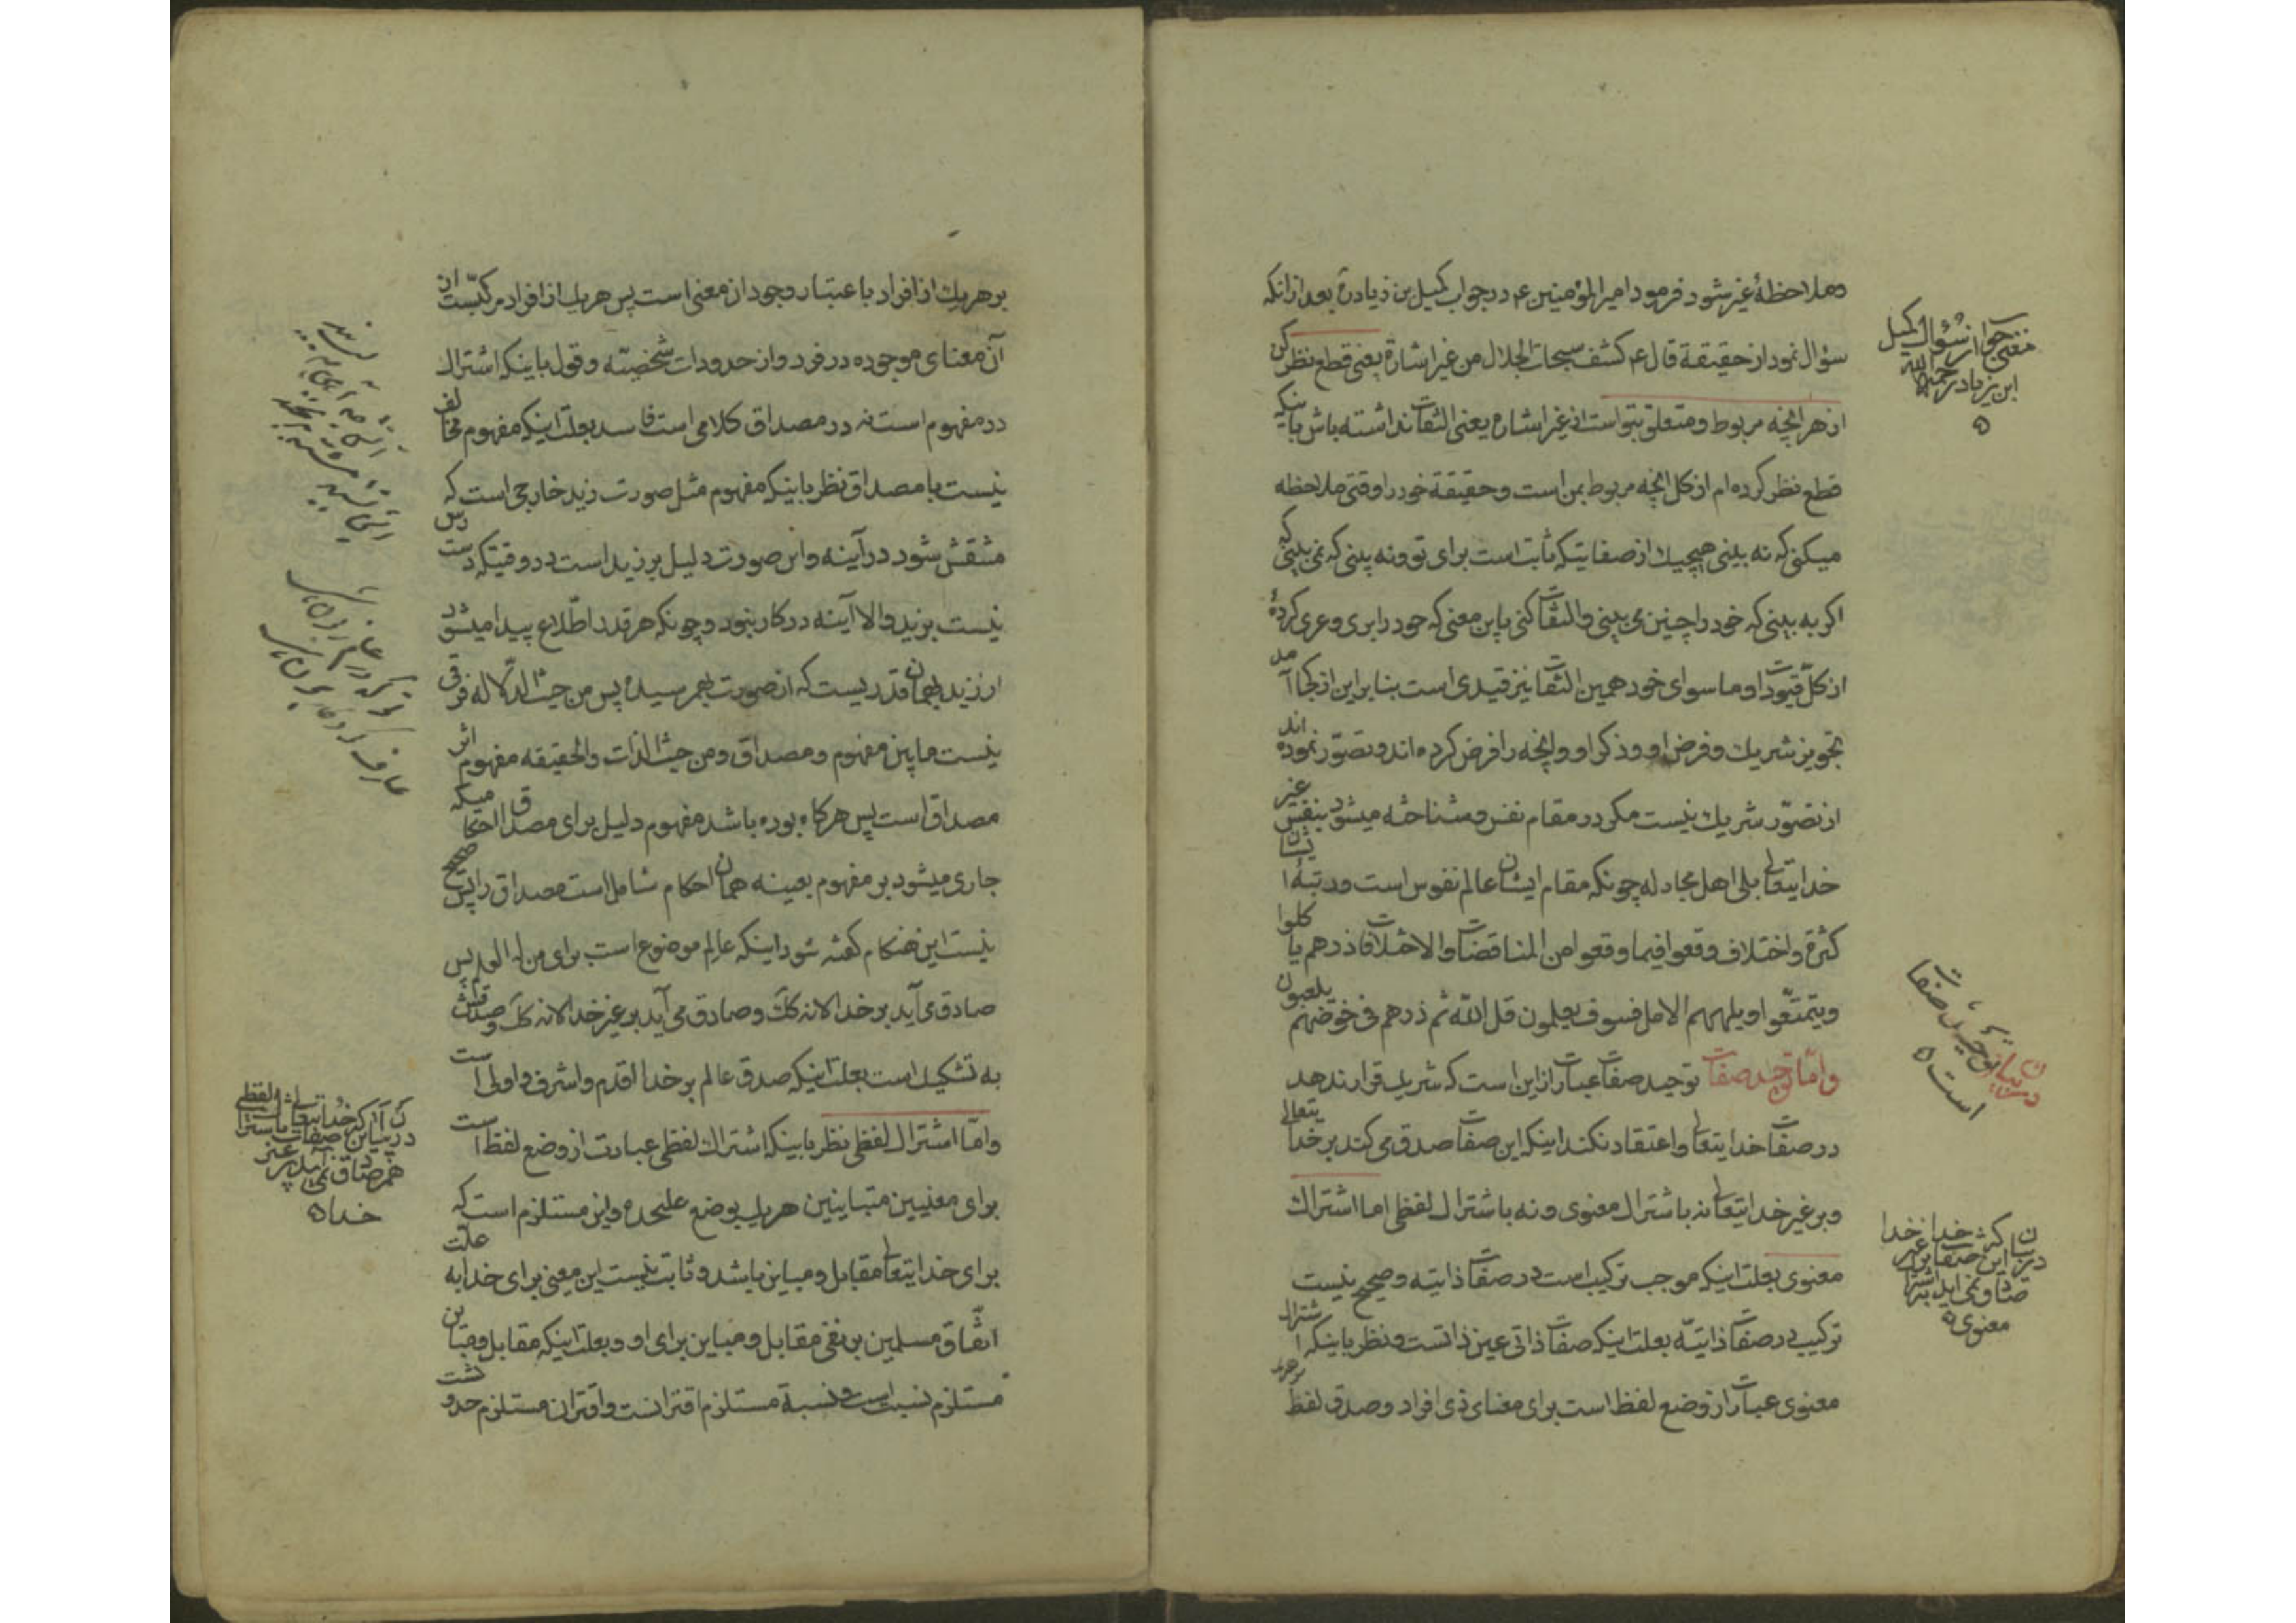 وملاحظهٔ غیر شود فرمود امیر المؤمنین ع در جواب کمیل بن زیاده بعد ازانکه
سؤال نمود از حقیقة قال ع کشف سبحات الجلال من غیر اشارة یعنی قطع نظر کن
از هر انچه مربوط و متعلق بتو است از غیر اشاره یعنی التفات نداشته باش باینکه
قطع نظر کرده ام از کل انچه مربوط بمن است و حقیقة خود را وقتی ملاحظه
میکنی که نه بینی هیچیک از صفاتیکه ثابت است برای تو و نه بینی که نمی بینی که
اکر به بینی که خود را چنین می بینی و التفات کنی باین معنی که خود را بری و عری کردهٔ
از کلّ قیودات و ما سوای خود همین التفات نیز قیدی است بنا براین از کجا آمد
تجویز شریک و فرض او و ذکر او و انچه را فرض کرده اند و تصوّر نموده اند
از تصوّر شریک نیست مکر در مقام نفس و شناخته میشود بنفس غیر
خدایتعالی بلی اهل مجادله چونکه مقام ایشان عالم نفوس است و رتبهٔ ایشان
کثرة و اختلاف وقعوا فیما وقعوا من المناقضات والاختلافات ذرهم یاکلوا
ویتمتّعوا ویلههم الامل فسوف یعلمون قل الله ثم ذرهم فی خوضهم یلعبون
وامّا توحید صفات توحید صفات عبارت از این است که شریک قرار ندهد
در صفات خدایتعالی و اعتقاد نکند اینکه این صفات صدق می کند بر خدایتعالی
و بر غیر خدایتعالی نه باشتراک معنوی و نه باشتراک لفظی اما اشتراک
معنوی بعلت اینکه موجب ترکیب است در صفات ذاتیه و صحیح نیست
ترکیب در صفات ذاتیّه بعلت اینکه صفات ذاتی عین ذاتست و نظر باینکه اشتراک
معنوی عبارت از وضع لفظ است برای معنای ذی افراد و صدق لفظ
معنی جواب از سُؤال کمیل
ابن زیاد رحمه الله
در بیان توحید صفات
است
در بیان
معنوی
بر هر یک از افراد باعتبار وجود ان معنی است پس هر یک از افراد مرکبّست از
آن معنای موجوده در فرد و از حدودات شخصیّه و قول باینکه اشتراک
در مفهوم است نه در مصداق کلامی است فاسد بعلت اینکه مفهوم مخالف
نیست با مصداق نظر باینکه مفهوم مثل صورت زید خارجی است که
منتقش شود در آینه و این صورت دلیل بر زید است در وقتیکه دست رس
نیست بزید والا آینه در کار نبود و چونکه هر قدر اطّلاع پیدا میشود
از زید بهمان قدریست که از صورت بهم رسیده پس من حیث الدّلاله فرقی
نیست مابین مفهوم و مصداق و من حیث الذات والحقیقه مفهوم اثر
مصداق است پس هرکاه بوده باشد مفهوم دلیل برای مصداق احکامیکه
جاری میشود بر مفهوم بعینه همان احکام شامل است مصداق را پس صحیح
نیست این هنکام کفته شود اینکه عالم موضوع است برای من له العلم پس
صادق می آید بر خدا لانه کک و صادق می آید بر غیر خدا لانه کک و صدقش
به تشکیک است بعلت اینکه صدق عالم بر خدا اقدم و اشرف و اولی است
وامّا اشتراک لفظی نظر باینکه اشتراک لفظی عبارت از وضع لفظ است
برای معنیین متباینین هر یک بوضع علیحده و این مستلزم است که
برای خدایتعالی مقابل و مباین باشد و ثابت نیست این معنی برای خدا به علّت
اتفّاق مسلمین بر نفی مقابل و مباین برای او و بعلت اینکه مقابل و مباین
مستلزم نسبت است و نسبة مستلزم اقترانست و اقتران مستلزم حدوثست
خدا